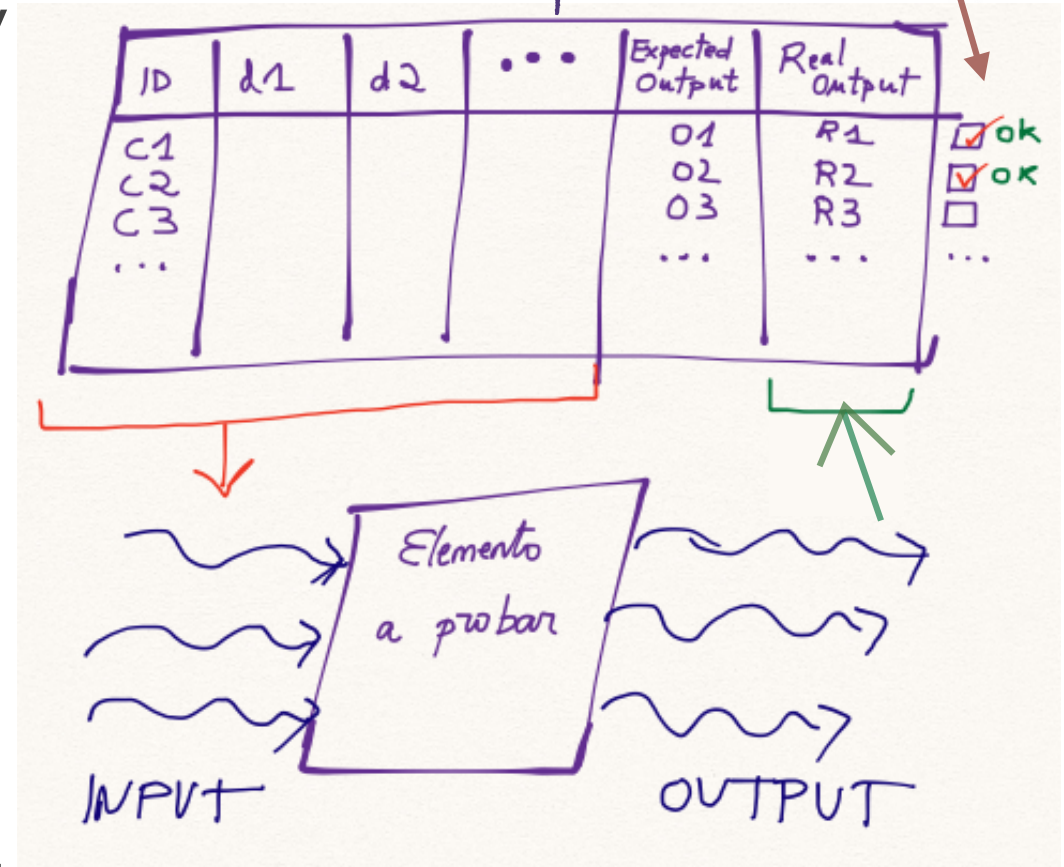 ID d1 d2 ... Expected Output Real Output
C1 O1 R1 ok
C2 O2 R2 OK
C3 O3 R3
... ... ... ...
Elemento
a probar
INPUT OUTPUT